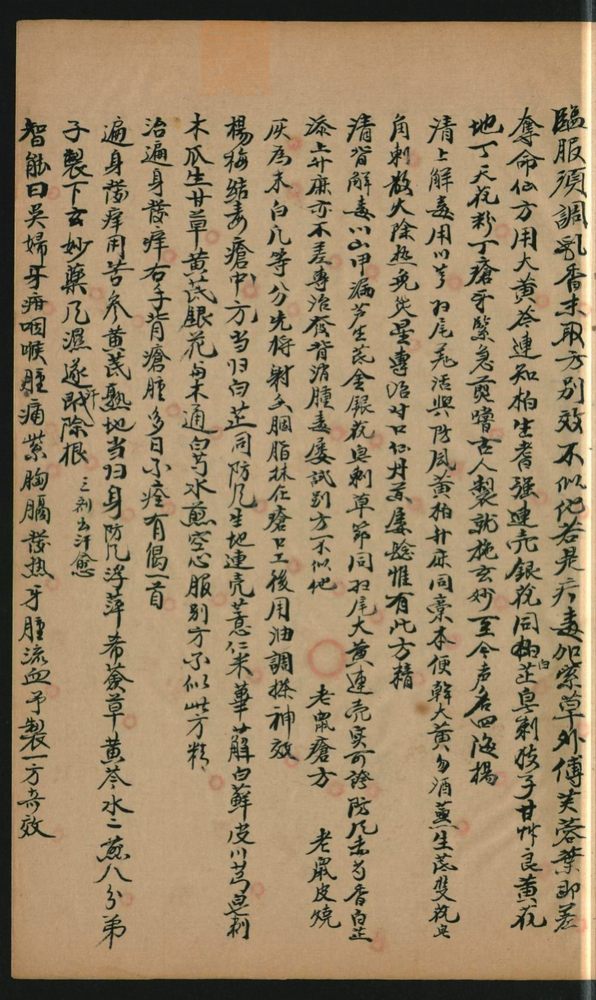 臨服須調乳香末取方別效不似他若是疔毒加紫草外傅芙蓉葉即差
奪命仙方用大黃芩連知柏生耆強連壳銀花同梔白芷皂刺枝子甘艸良黃花
地丁天花粉丁瘡牙緊急煎嚐古人製就施玄妙至今声名四海揚
清上解毒用川芎归尾羌活與防風黃柏升麻同藁本便幹大黃分酒蒸生芪雙花皂
角刺散火除热免災星專治对口仙丹葯屡騐惟有此方精
清背解毒川山甲漏芦生芪金銀花皂刺草節同归尾大黃連壳实可誇防风赤芍香白芷
添上升麻亦不差專治發背消腫毒屡試別方不似他 老鼠瘡方 老鼠皮燒
灰為末白凡等分先将射女胭脂抹在瘡口上後用油調搽神效
楊梅結毒瘡中方当归白芷同防风生地連壳薏仁米萆薢白蘚皮川芎皂刺
木瓜生甘草黃芪銀花与木通白芍水煎空心服別方不似此方精
治遍身發痒右手背瘡腫多日不痊有偈一首
遍身發痒用苦参黃芪熟地当归身防风浮萍希薟草黃芩水二煎八分弟
子製下玄妙藥风濕逐即汗除根 三剂出汗愈
智能曰吴婦牙疳咽喉腫痛紫胸膈發热牙腫流血予製一方奇效